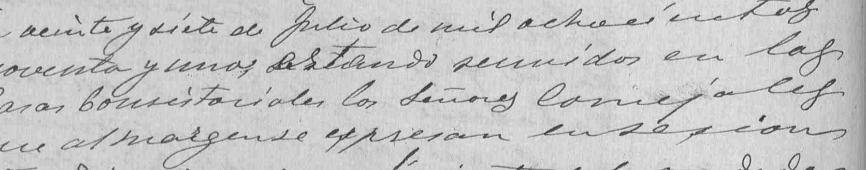 veinte y siete de Julio de mil ochocientos
noventa y uno, estando reunidos en las
Casas Consistoriales los Señores Concejales
que al margen se expresan en sesion